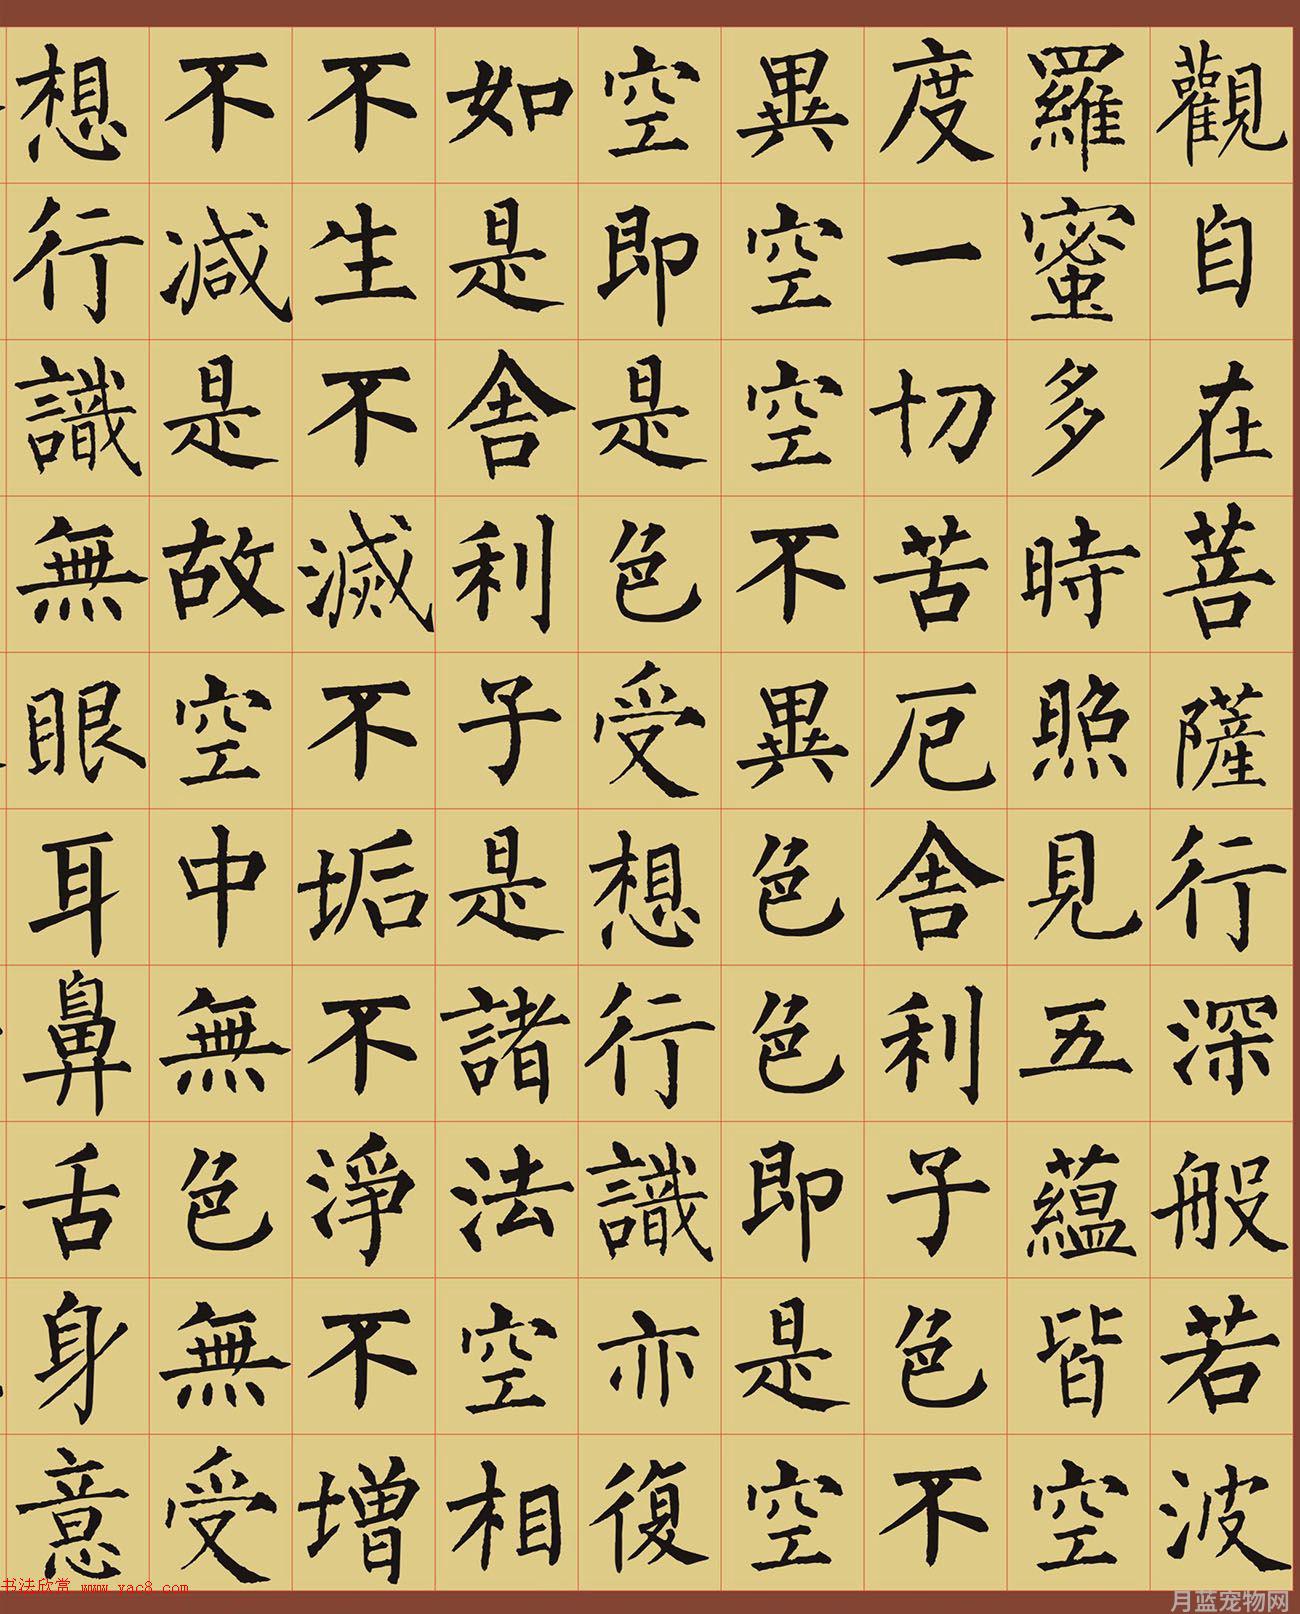 觀自在菩薩行深般若波
羅蜜多時照見五蘊皆空
度一切苦厄舍利子色不
異空空不異色色即是空
空即是色受想行識亦復
如是舍利子是諸法空相
不生不滅不垢不淨不增
不減是故空中無色無受
想行識無眼耳鼻舌身意
书法欣赏 www.yac8.com
月蓝宠物网